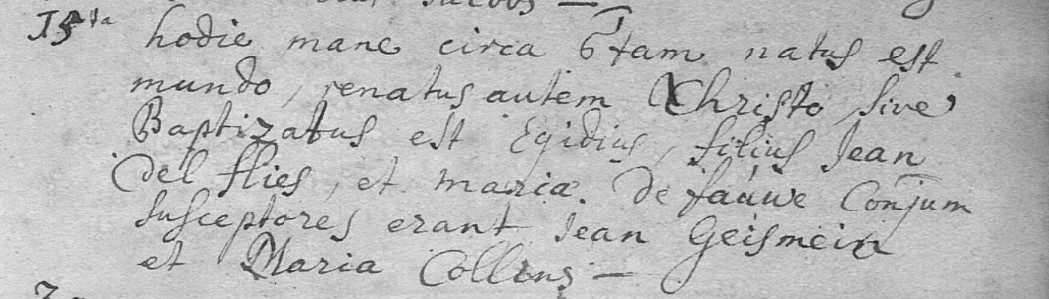 15ta hodie mane circa 6tam natus est
mundo, renatus autem Christo, sive
Baptizatus est Egidius, filius Jean
Del flies, et maria. De fauwe Conjum
susceptores erant Jean Geismein
et Maria Collens —